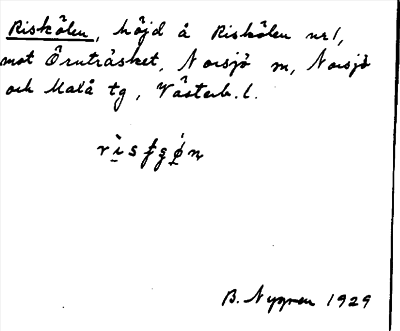 Riskölen, höjd å Riskölen nr 1,
mot Örträsket, Norsjö m, Norsjö
och Malå tg, Västerb. l.
B. Nygren 1929